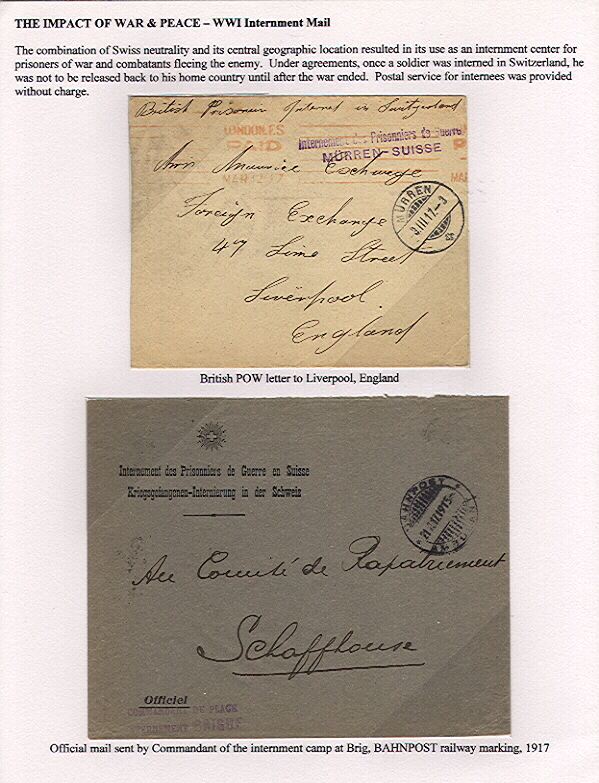 THE IMPACT OF WAR & PEACE – WWI Internment Mail
The combination of Swiss neutrality and its central geographic location resulted in its use as an internment center for
prisoners of war and combatants fleeing the enemy. Under agreements, once a soldier was interned in Switzerland, he
was not to be released back to his home country until after the war ended. Postal service for internees was provided
without charge.
British Prisoner Interned in Switzerland
LONDON E.S.
PAID
MAR 12 17
Internement des Prisonniers de Guerre
MÜRREN-SUISSE
Maurice Eschwege
MÜRREN
9.III.17.-3
Foreign Exchange
47 Lime Street
Liverpool
England
British POW letter to Liverpool, England
Internement des Prisonniers de Guerre en Suisse
Kriegsgefangenen-Internierung in der Schweiz
BAHNPOST
Au Comité de Rapatriement
Schaffhouse
Officiel
COMMANDANT DE PLACE
INTERNEMENT BRIGUE
Official mail sent by Commandant of the internment camp at Brig, BAHNPOST railway marking, 1917